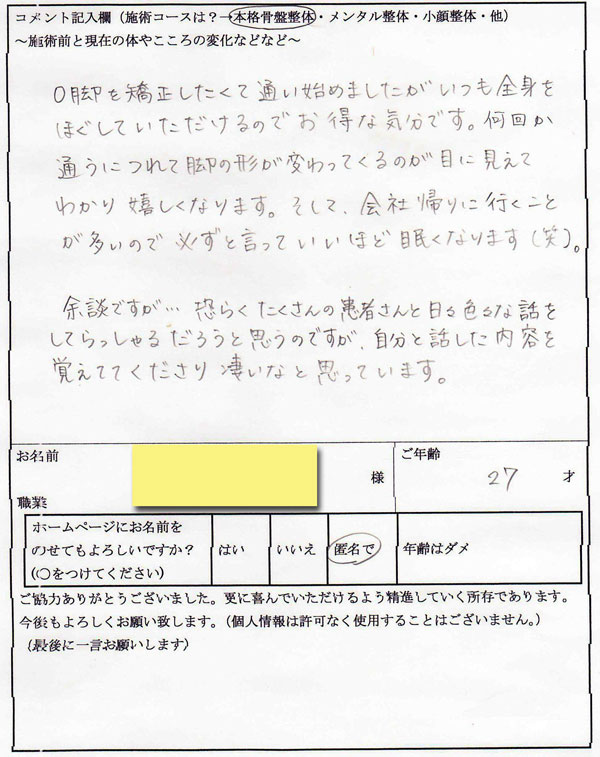 コメント記入欄（施術コースは？→本格骨盤整体・メンタル整体・小顔整体・他）
～施術前と現在の体やこころの変化などなど～
O脚を矯正したくて通い始めましたがいつも全身を
ほぐしていただけるのでお得な気分です。何回か
通うにつれて脚の形が変わってくるのが目に見えて
わかり嬉しくなります。そして、会社帰りに行くこと
が多いので必ずと言っていいほど眠くなります（笑）。
余談ですが… 恐らくたくさんの患者さんと日々色々な話を
してらっしゃるだろうと思うのですが、自分と話した内容を
覚えててくださり凄いなと思っています。
お名前
様
ご年齢
27 才
職業
ホームページにお名前を
のせてもよろしいですか？
（○をつけてください）
はい
いいえ
匿名で
年齢はダメ
ご協力ありがとうございました。更に喜んでいただけるよう精進していく所存であります。
今後もよろしくお願い致します。（個人情報は許可なく使用することはございません。）
（最後に一言お願いします）